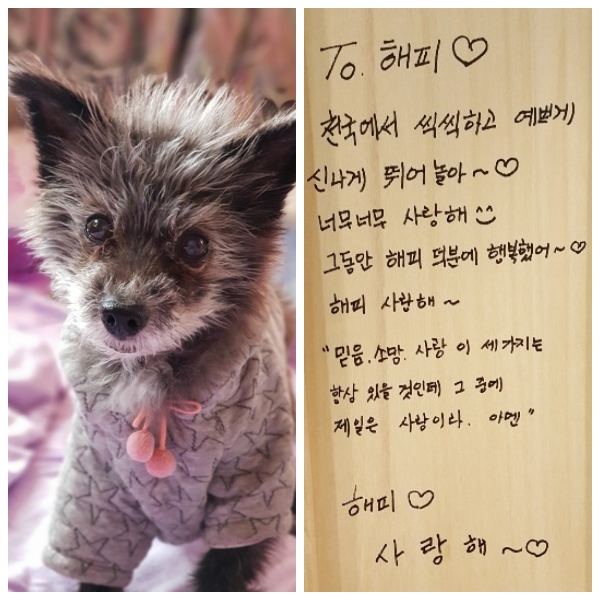 To. 해피 ♡
천국에서 씩씩하고 예쁘게
신나게 뛰어놀아~♡
너무너무 사랑해 ^^
그동안 해피 덕분에 행복했어~♡
해피 사랑해~
"믿음, 소망, 사랑 이 세가지는
항상 있을 것인데 그 중에
제일은 사랑이라. 아멘"
해피 ♡
사랑해~♡